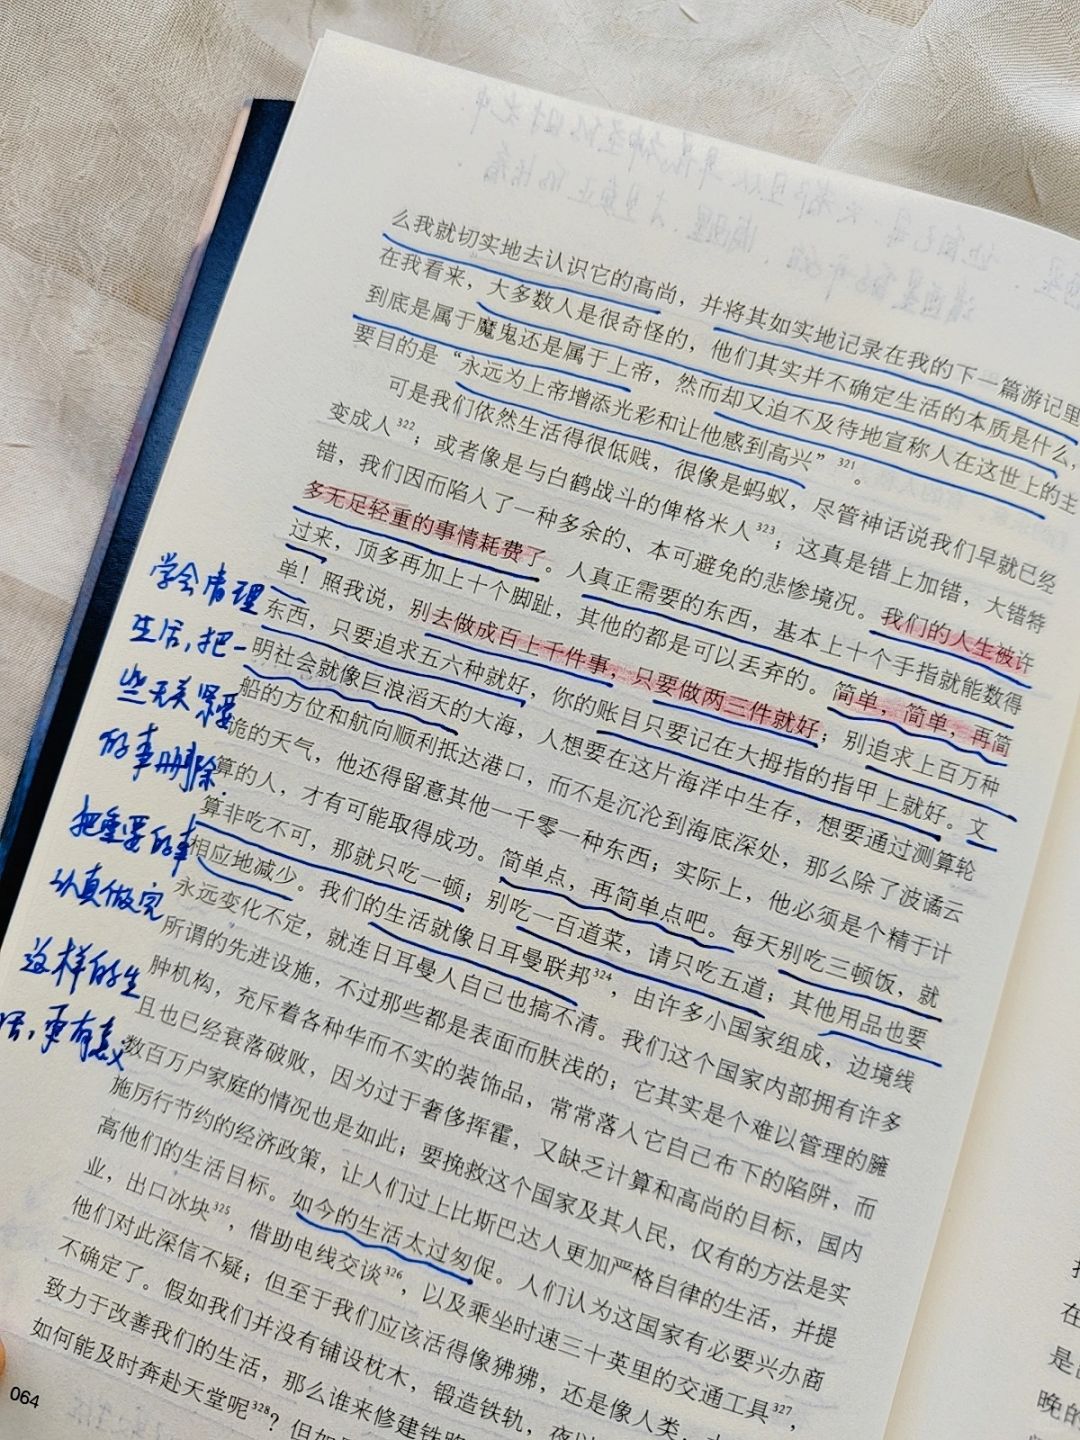 么我就切实地去认识它的高尚，并将其如实地记录在我的下一篇游记里
在我看来，大多数人是很奇怪的，他们其实并不确定生活的本质是什么，
到底是属于魔鬼还是属于上帝，然而却又迫不及待地宣称人在这世上的主
要目的是“永远为上帝增添光彩和让他感到高兴”321。
可是我们依然生活得很低贱，很像是蚂蚁，尽管神话说我们早就已经
变成人322；或者像是与白鹤战斗的俾格米人323；这真是错上加错，大错特
错，我们因而陷入了一种多余的、本可避免的悲惨境况。我们的人生被许
多无足轻重的事情耗费了。人真正需要的东西，基本上十个手指就能数得
过来，顶多再加上十个脚趾，其他的都是可以丢弃的。简单，简单，再简
单！照我说，别去做成百上千件事，只要做两三件就好；别追求上百万种
东西，只要追求五六种就好，你的账目只要记在大拇指的指甲上就好。文
明社会就像巨浪滔天的大海，人想要在这片海洋中生存，想要通过测算轮
船的方位和航向顺利抵达港口，而不是沉沦到海底深处，那么除了波谲云
诡的天气，他还得留意其他一千零一种东西；实际上，他必须是个精于计
算的人，才有可能取得成功。简单点，再简单点吧。每天别吃三顿饭，就
算非吃不可，那就只吃一顿；别吃一百道菜，请只吃五道；其他用品也要
相应地减少。我们的生活就像日耳曼联邦324，由许多小国家组成，边境线
永远变化不定，就连日耳曼人自己也搞不清。我们这个国家内部拥有许多
所谓的先进设施，不过那些都是表面而肤浅的；它其实是个难以管理的臃
肿机构，充斥着各种华而不实的装饰品，常常落入它自己布下的陷阱，而
且也已经衰落破败，因为过于奢侈挥霍，又缺乏计算和高尚的目标，国内
数百万户家庭的情况也是如此；要挽救这个国家及其人民，仅有的方法是实
施厉行节约的经济政策，让人们过上比斯巴达人更加严格自律的生活，并提
高他们的生活目标。如今的生活太过匆促。人们认为这国家有必要兴办商
业，出口冰块325，借助电线交谈326，以及乘坐时速三十英里的交通工具327，
他们对此深信不疑；但至于我们应该活得像狒狒，还是像人类，
不确定了。假如我们并没有铺设枕木，锻造铁轨，夜以
致力于改善我们的生活，那么谁来修建铁路
如何能及时奔赴天堂呢328？但如
064
学会清理
生活，把一
些无关紧要
的事删除.
把重要的事
认真做完
这样的生
活，更有意义
在
是
晚的